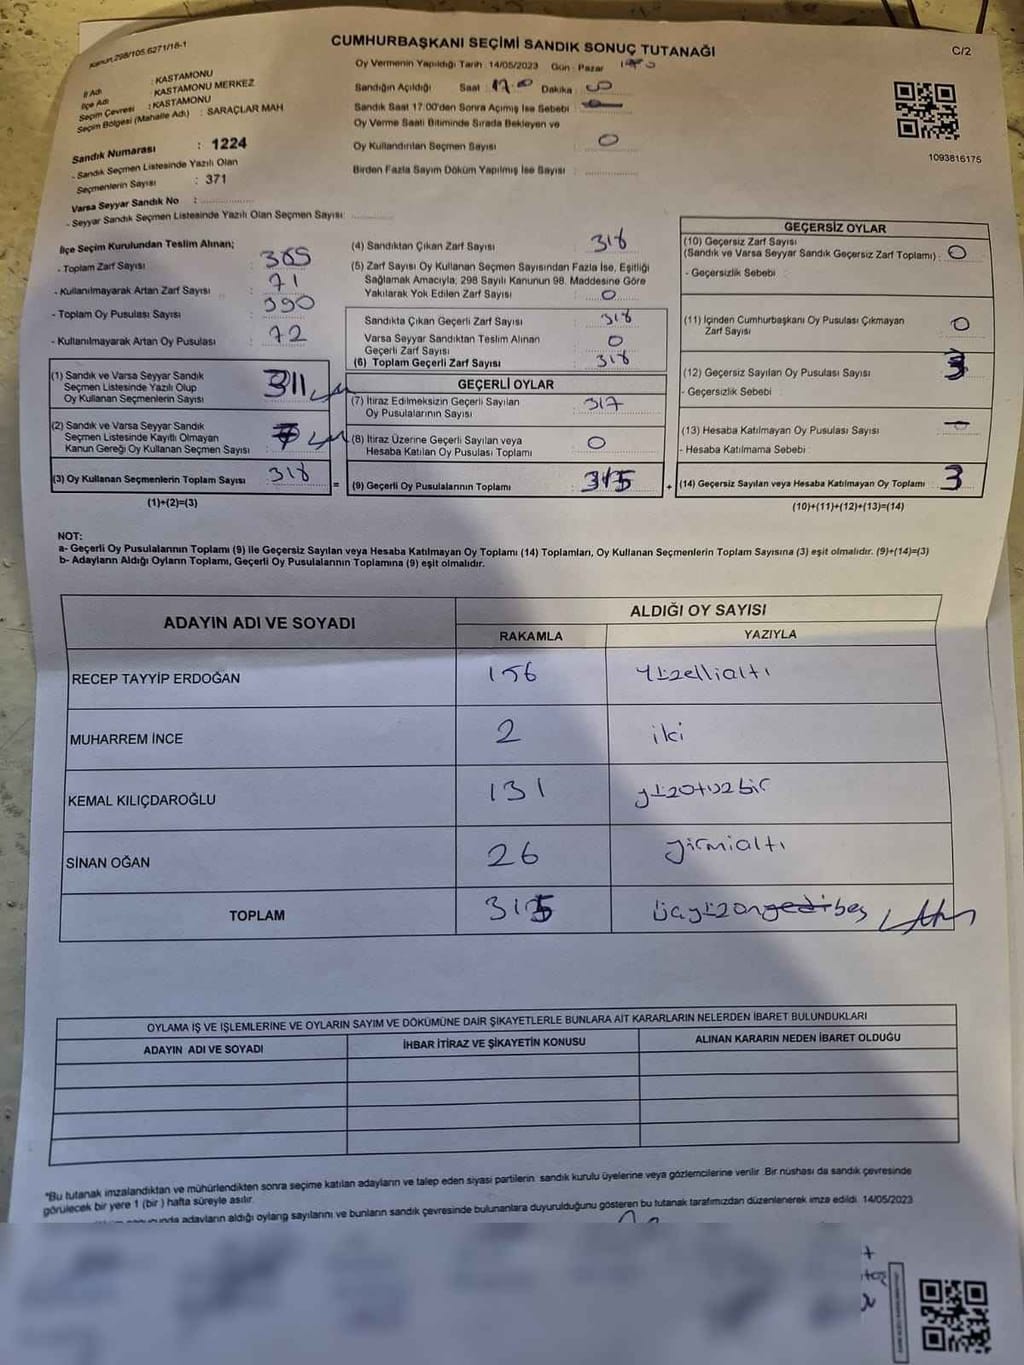 Kanun 298/105.6271/18-1
CUMHURBAŞKANI SEÇİMİ SANDIK SONUÇ TUTANAĞI
C/2
İl Adı : KASTAMONU
İlçe Adı : KASTAMONU MERKEZ
Seçim Çevresi : KASTAMONU
Seçim Bölgesi (Mahalle Adı) : SARAÇLAR MAH
Sandık Numarası : 1224
- Sandık Seçmen Listesinde Yazılı Olan
Seçmenlerin Sayısı : 371
Varsa Seyyar Sandık No :
- Seyyar Sandık Seçmen Listesinde Yazılı Olan Seçmen Sayısı:
Oy Vermenin Yapıldığı Tarih : 14/05/2023 Gün : Pazar
Sandığın Açıldığı Saat : 17.00 Dakika :
Sandık Saat 17:00'den Sonra Açımış İse Sebebi :
Oy Verme Saati Bitiminde Sırada Bekleyen ve
Oy Kullandırılan Seçmen Sayısı : 0
Birden Fazla Sayım Döküm Yapılmış İse Sayısı :
1093816175
İlçe Seçim Kurulundan Teslim Alınan;
- Toplam Zarf Sayısı : 385
- Kullanılmayarak Artan Zarf Sayısı : 71
- Toplam Oy Pusulası Sayısı : 390
- Kullanılmayarak Artan Oy Pusulası : 72
(1) Sandık ve Varsa Seyyar Sandık
Seçmen Listesinde Yazılı Olup
Oy Kullanan Seçmenlerin Sayısı : 311
(2) Sandık ve Varsa Seyyar Sandık
Seçmen Listesinde Kayıtlı Olmayan
Kanun Gereği Oy Kullanan Seçmen Sayısı : 7
(3) Oy Kullanan Seçmenlerin Toplam Sayısı : 318
(1)+(2)=(3)
(4) Sandıktan Çıkan Zarf Sayısı : 318
(5) Zarf Sayısı Oy Kullanan Seçmen Sayısından Fazla İse, Eşitliği
Sağlamak Amacıyla; 298 Sayılı Kanunun 98. Maddesine Göre
Yakılarak Yok Edilen Zarf Sayısı : 0
Sandıkta Çıkan Geçerli Zarf Sayısı : 318
Varsa Seyyar Sandıktan Teslim Alınan
Geçerli Zarf Sayısı : 0
(6) Toplam Geçerli Zarf Sayısı : 318
GEÇERLİ OYLAR
(7) İtiraz Edilmeksizin Geçerli Sayılan
Oy Pusulalarının Sayısı : 317
(8) İtiraz Üzerine Geçerli Sayılan veya
Hesaba Katılan Oy Pusulası Toplamı : 0
= (9) Geçerli Oy Pusulalarının Toplamı : 315
GEÇERSİZ OYLAR
(10) Geçersiz Zarf Sayısı
(Sandık ve Varsa Seyyar Sandık Geçersiz Zarf Toplamı) : 0
- Geçersizlik Sebebi :
(11) İçinden Cumhurbaşkanı Oy Pusulası Çıkmayan
Zarf Sayısı : 0
(12) Geçersiz Sayılan Oy Pusulası Sayısı : 3
- Geçersizlik Sebebi :
(13) Hesaba Katılmayan Oy Pusulası Sayısı :
- Hesaba Katılmama Sebebi :
+ (14) Geçersiz Sayılan veya Hesaba Katılmayan Oy Toplamı : 3
(10)+(11)+(12)+(13)=(14)
NOT:
a- Geçerli Oy Pusulalarının Toplamı (9) ile Geçersiz Sayılan veya Hesaba Katılmayan Oy Toplamı (14) Toplamları, Oy Kullanan Seçmenlerin Toplam Sayısına (3) eşit olmalıdır. (9)+(14)=(3)
b- Adayların Aldığı Oyların Toplamı, Geçerli Oy Pusulalarının Toplamına (9) eşit olmalıdır.
ADAYIN ADI VE SOYADI ALDIĞI OY SAYISI
RAKAMLA YAZIYLA
RECEP TAYYİP ERDOĞAN 156 Yüzellialtı
MUHARREM İNCE 2 iki
KEMAL KILIÇDAROĞLU 131 yüzotuzbir
SİNAN OĞAN 26 yirmialtı
TOPLAM 315 üçyüzonyedibeş
OYLAMA İŞ VE İŞLEMLERİNE VE OYLARIN SAYIM VE DÖKÜMÜNE DAİR ŞİKAYETLERLE BUNLARA AİT KARARLARIN NELERDEN İBARET BULUNDUKLARI
ADAYIN ADI VE SOYADI İHBAR İTİRAZ VE ŞİKAYETİN KONUSU ALINAN KARARIN NEDEN İBARET OLDUĞU
*Bu tutanak imzalandıktan ve mühürlendikten sonra seçime katılan adayların ve talep eden siyasi partilerin sandık kurulu üyelerine veya gözlemcilerine verilir. Bir nüshası da sandık çevresinde
görülecek bir yere 1 (bir) hafta süreyle asılır.
adayların aldığı oyların sayılarını ve bunların sandık çevresinde bulunanlara duyurulduğunu gösteren bu tutanak tarafımızdan düzenlenerek imza edildi. 14/05/2023